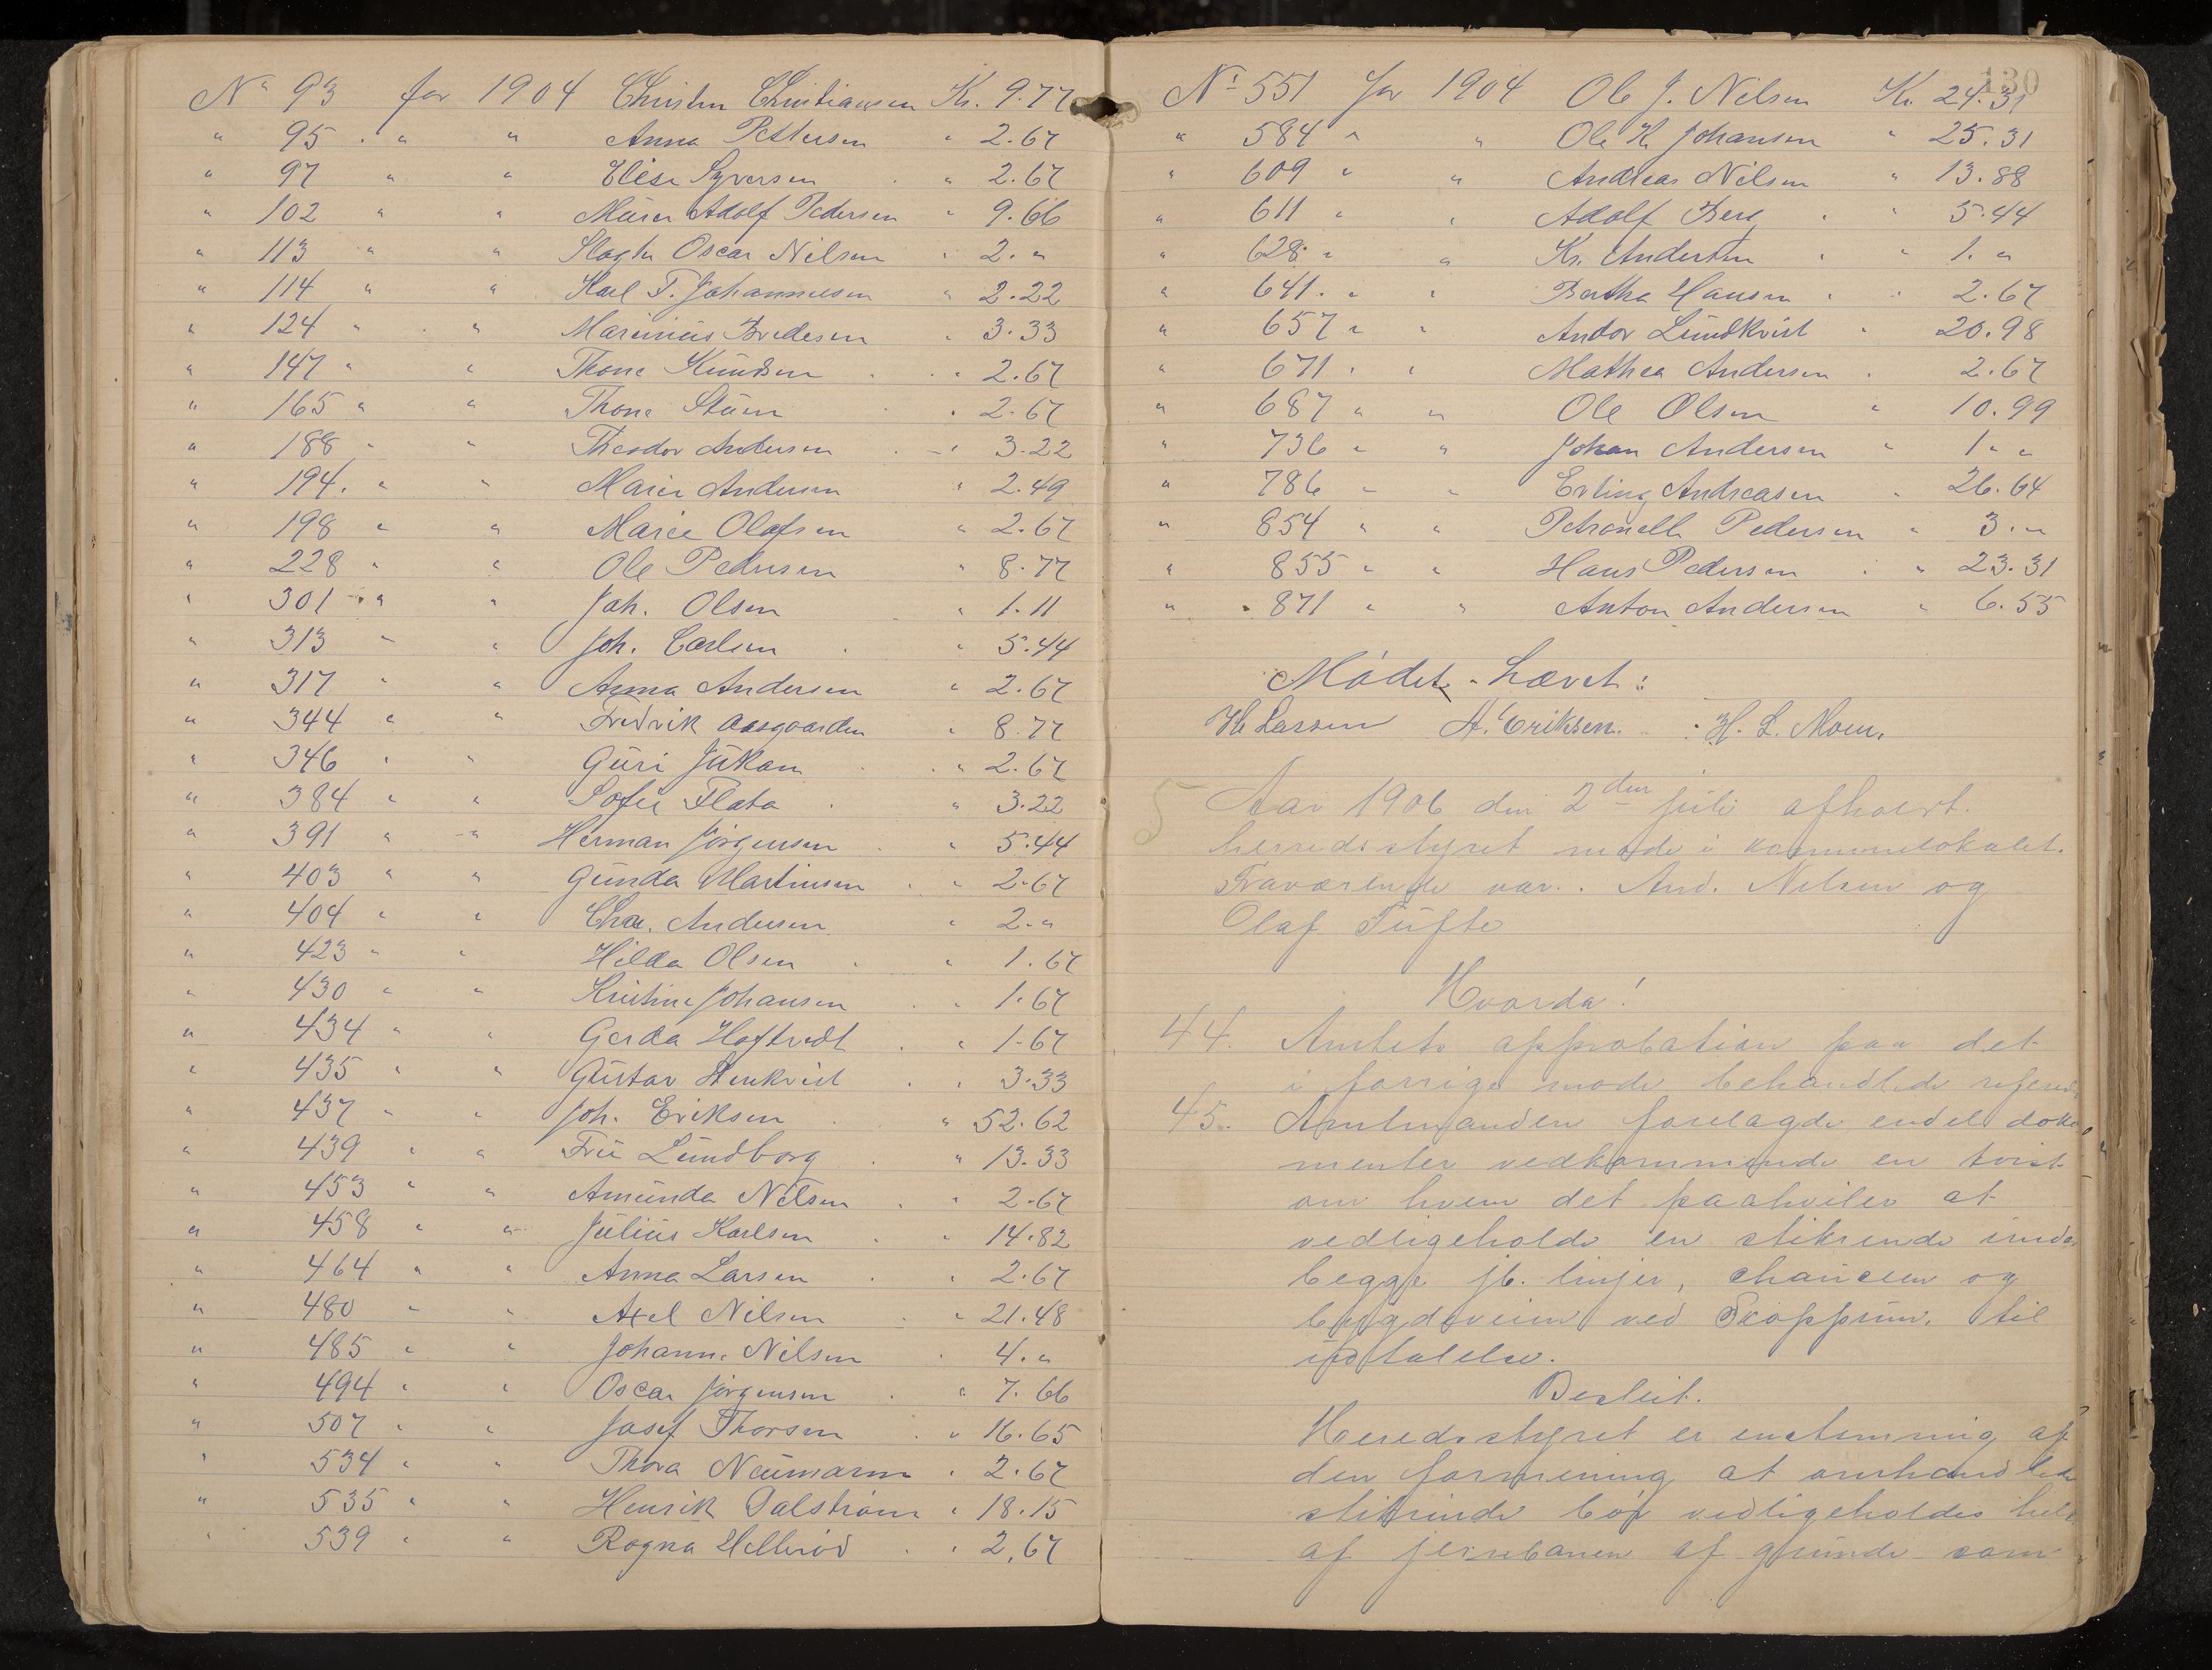 No 93 for 1904 Christen Christiansen Kr. 9.77
" 95 " " Anna Pettersen " 2.67
" 97 " " Elise Syversen " 2.67
" 102 " " Murer Adolf Pedersen " 9.66
" 113 " " Slagter Oscar Nilsen " 2. "
" 114 " " Karl F. Johannesen " 2.22
" 124 " " Marinius Bredesen " 3.33
" 147 " " Thone Knudsen " 2.67
" 165 " " Thone " 2.67
" 188 " " Theodor Andersen " 3.22
" 194 " " Maria Andersen " 2.49
" 198 " " Marie Olafsen " 2.67
" 228 " " Ole Pedersen " 8.77
" 301 " " Joh. Olsen " 1.11
" 313 " " Joh. Carlsen " 5.44
" 317 " " Anna Andersen " 2.67
" 344 " " Fredrik Aasgaarden " 8.77
" 346 " " Guri " 2.67
" 384 " " Sofie Flata " 3.22
" 391 " " Herman Jørgensen " 5.44
" 403 " " Gunda Martinsen " 2.67
" 404 " " Andersen " 2. "
" 423 " " Hilda Olsen " 1.67
" 430 " " Kristine Johansen " 1.67
" 434 " " Gerda Hoftvedt " 1.67
" 435 " " Gustav Stenkvist " 3.33
" 437 " " Joh. Eriksen " 52.62
" 439 " " Fru Lundborg " 13.33
" 453 " " Amunda Nilsen " 2.67
" 458 " " Julius Karlsen " 14.82
" 464 " " Anna Larsen " 2.67
" 480 " " Axel Nilsen " 21.48
" 485 " " Johanne Nilsen " 4. "
" 494 " " Oscar Jørgensen " 7.66
" 507 " " Josef Thorsen " 16.65
" 534 " " Thora Neumann " 2.67
" 535 " " Henrik Dalstrøm " 18.15
" 539 " " Ragna Hellerød " 2,67
130
No 551 for 1904 Ole J. Nilsen Kr. 24.31
" 584 " " Ole K. Johansen " 25.31
" 609 " " Andreas Nilsen " 13.88
" 611 " " Adolf Berg " 5.44
" 628 " " Kr. Andersen " 1. "
" 641 " " Bertha Hansen " 2.67
" 657 " " Andor Lundkvist " 20.98
" 671 " " Mathea Andersen " 2.67
" 687 " " Ole Olsen " 10.99
" 736 " " Johan Andersen " 1 " "
" 786 " " Erling Andreasen " 26.64
" 854 " " Petronelle Pedersen " 3. "
" 855 " " Hans Pedersen " 23.31
" 871 " " Anton Andersen " 6.55
Mødet hævet:
H. Larsen A. Eriksen. H. L. Moen.
5 Aar 1906 den 2den juli afholdt
herredsstyret møde i kommunelokalet.
Fraværende var. And. Nilsen og
Olaf Tufte
Hvorda!
44. Amtets approbation paa det
i forrige møde behandlede
45. Amtmanden forelagde endel doku
menter vedkommende en tvist
om hvem det paahviler at
vedligeholde en stikrende under
begge jb. linjer, chauseen og
bygdeveien ved Skoppum. til
udtalelse.
Beslut.
Herredsstyret er enstemmig af
den formening at omhandlede
stikrende bør vedligeholdes helt
af jernbanen af grunde som